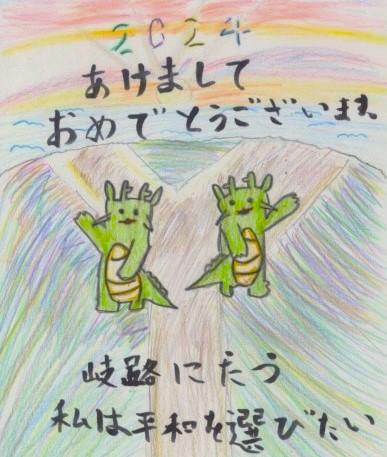 2024
あけまして
おめでとうございます
岐路にたつ
私は平和を選びたい